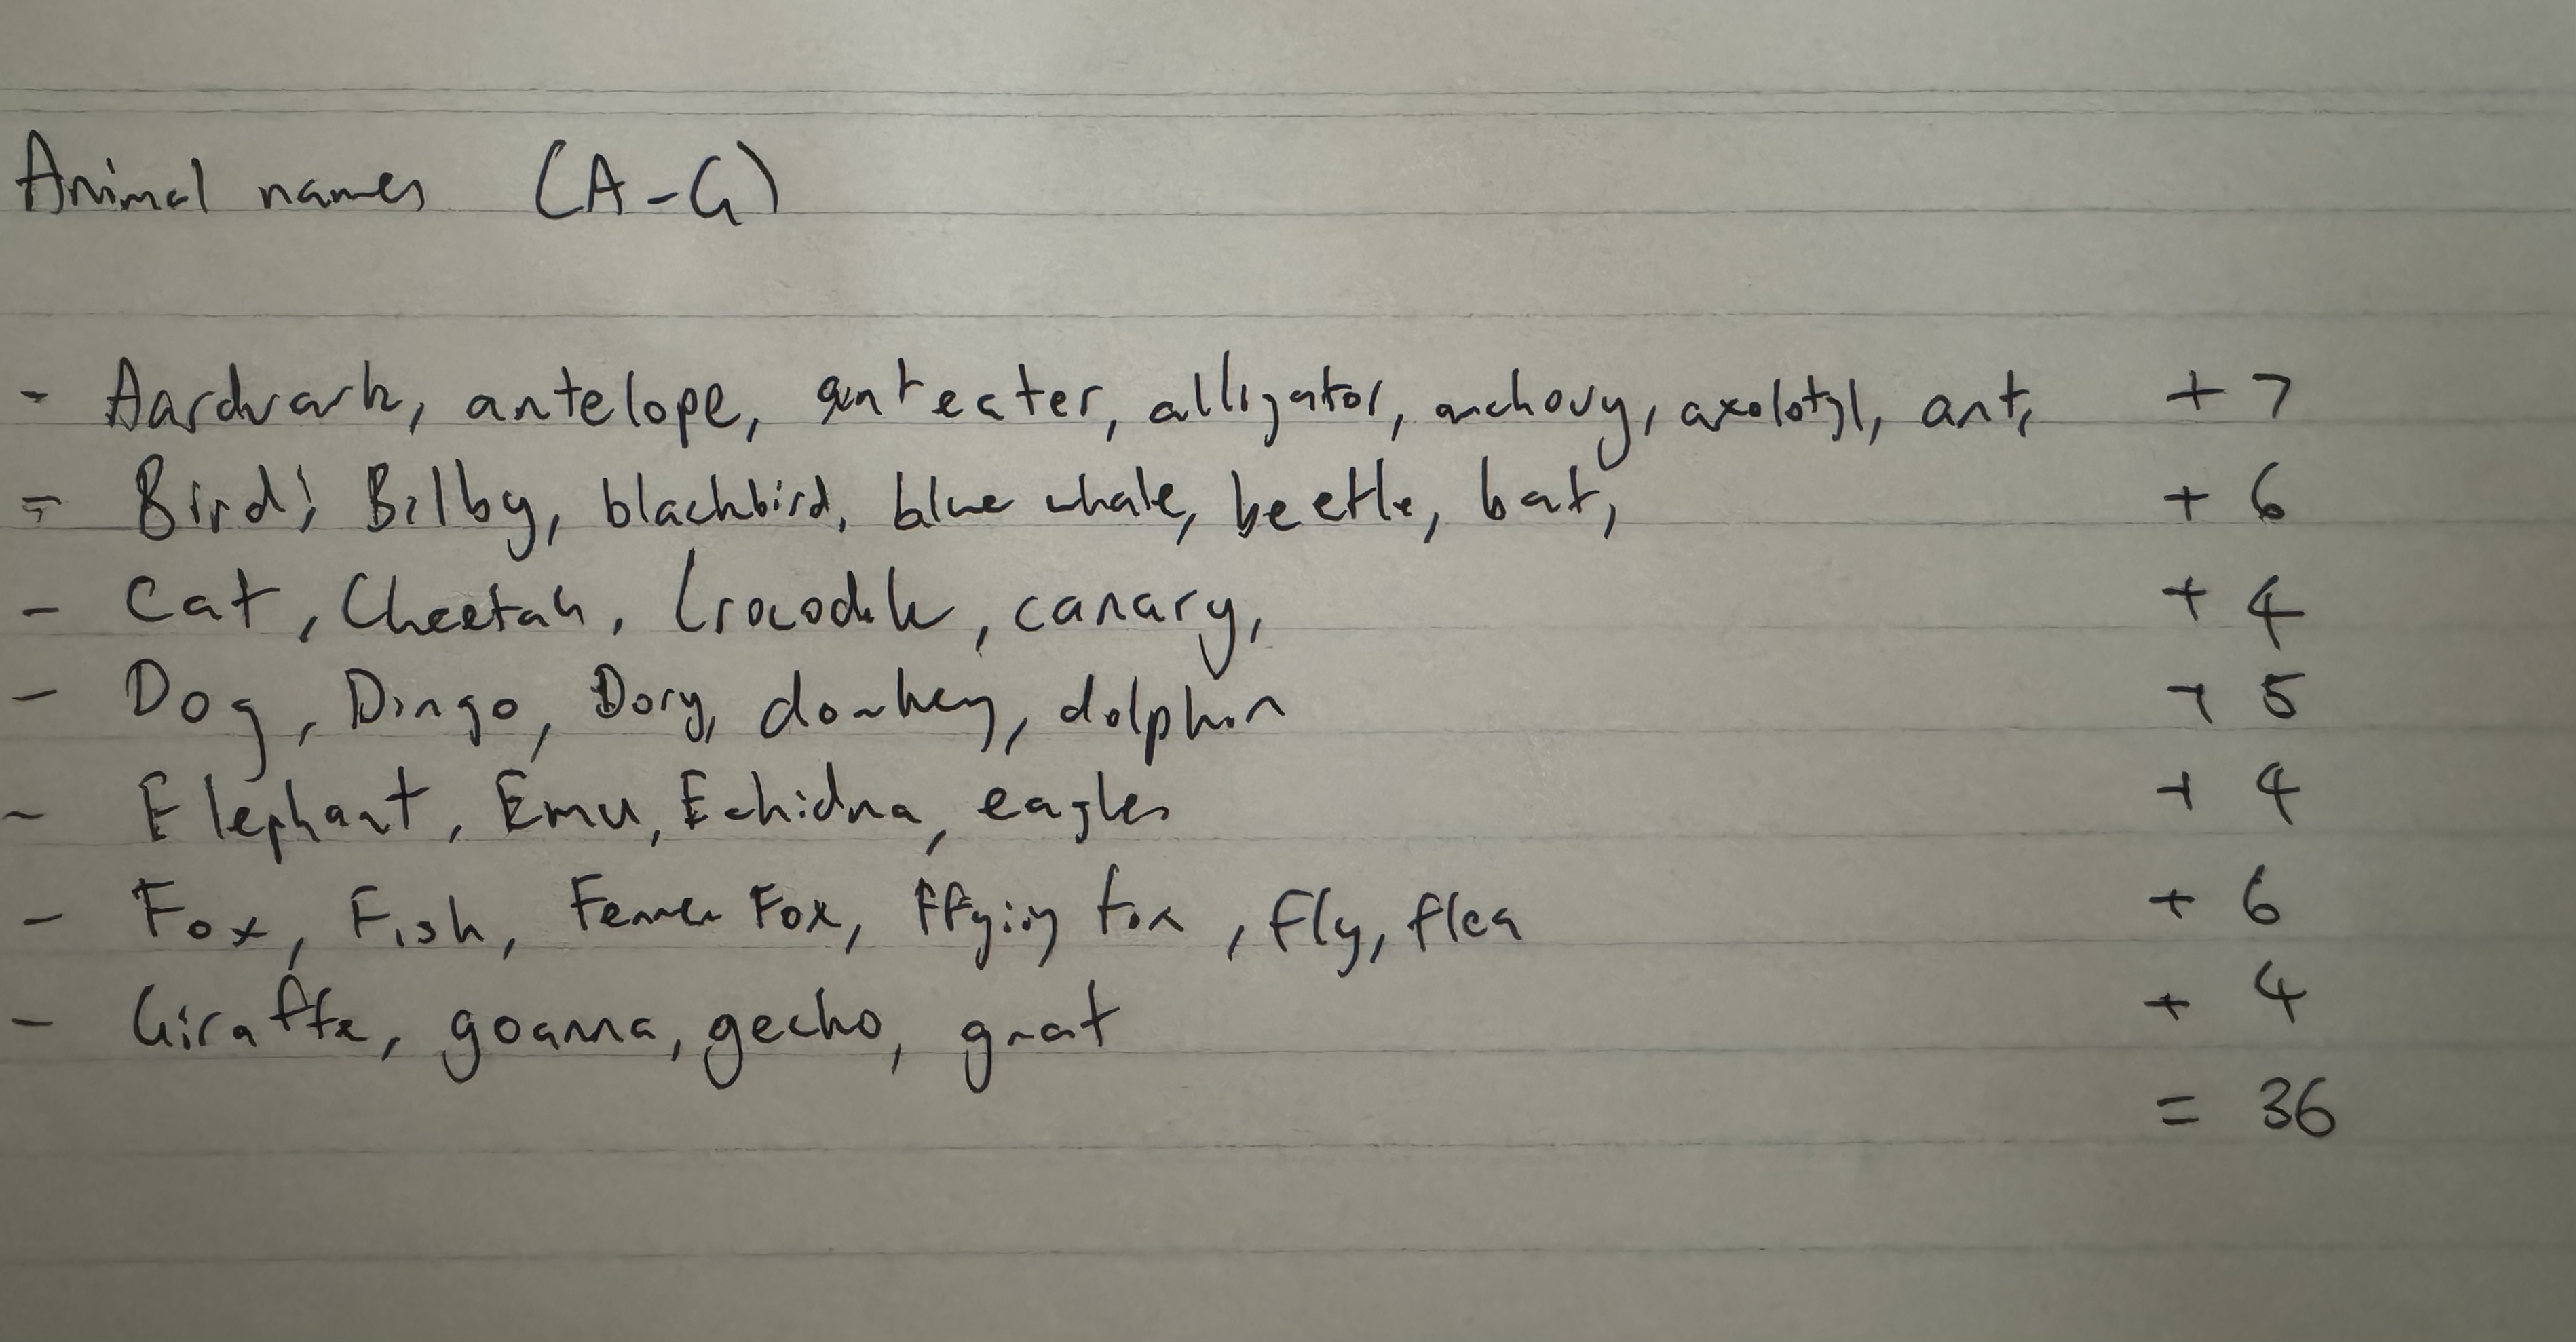 Animal names (A-G)
- Aardvark, antelope, anteater, alligator, anchovy, axolotyl, ant, + 7
- Bird, Bilby, blackbird, blue whale, beetle, bat, + 6
- Cat, Cheetah, Crocodile, canary, + 4
- Dog, Dingo, Dory, donkey, dolphin + 5
- Elephant, Emu, Echidna, eagles + 4
- Fox, Fish, Fox, fox, fly, flea + 6
- Giraffe, goanna, gecko, gnat + 4
= 36